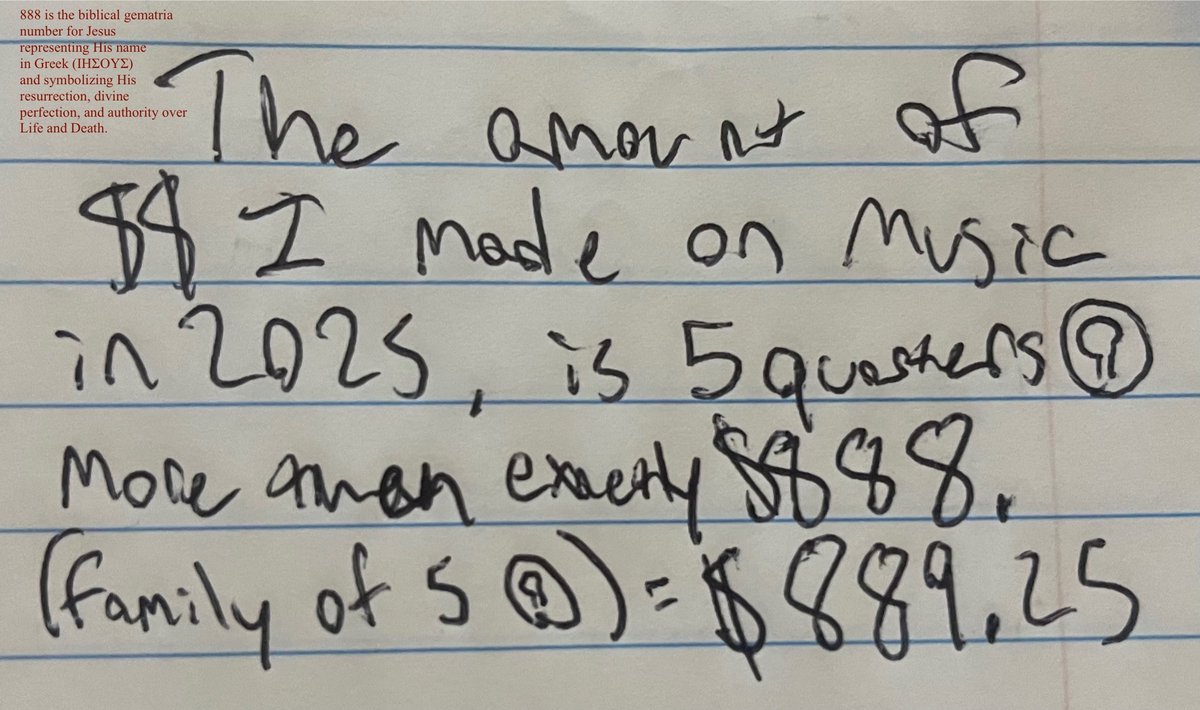 888 is the biblical gematria
number for Jesus
representing His name
in Greek (ΙΗΣΟΥΣ)
and symbolizing His
resurrection, divine
perfection, and authority over
Life and Death.
The amount of
$$ I made on Music
in 2025, is 5 quarters
More than exactly $888.
(family of 5 ) = $889.25